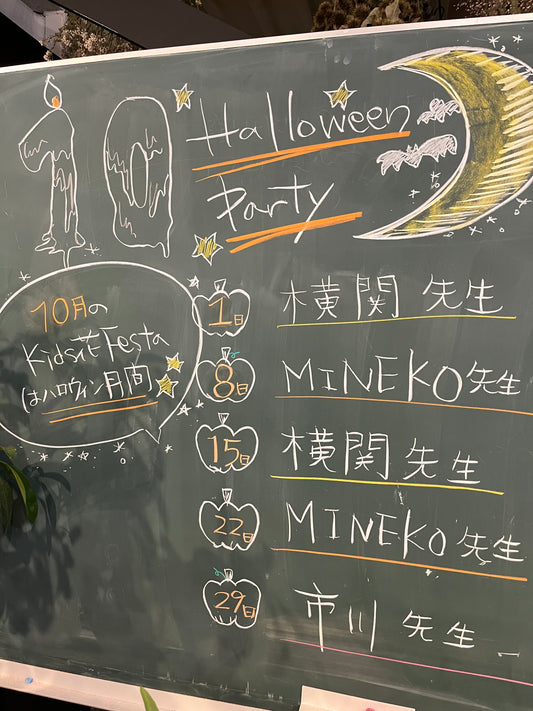 10
Halloween
Party
10月の
Kids花Festa
はハロウィン月間
1日 横関 先生
8日 MINEKO 先生
15日 横関 先生
22日 MINEKO 先生
29日 市川 先生